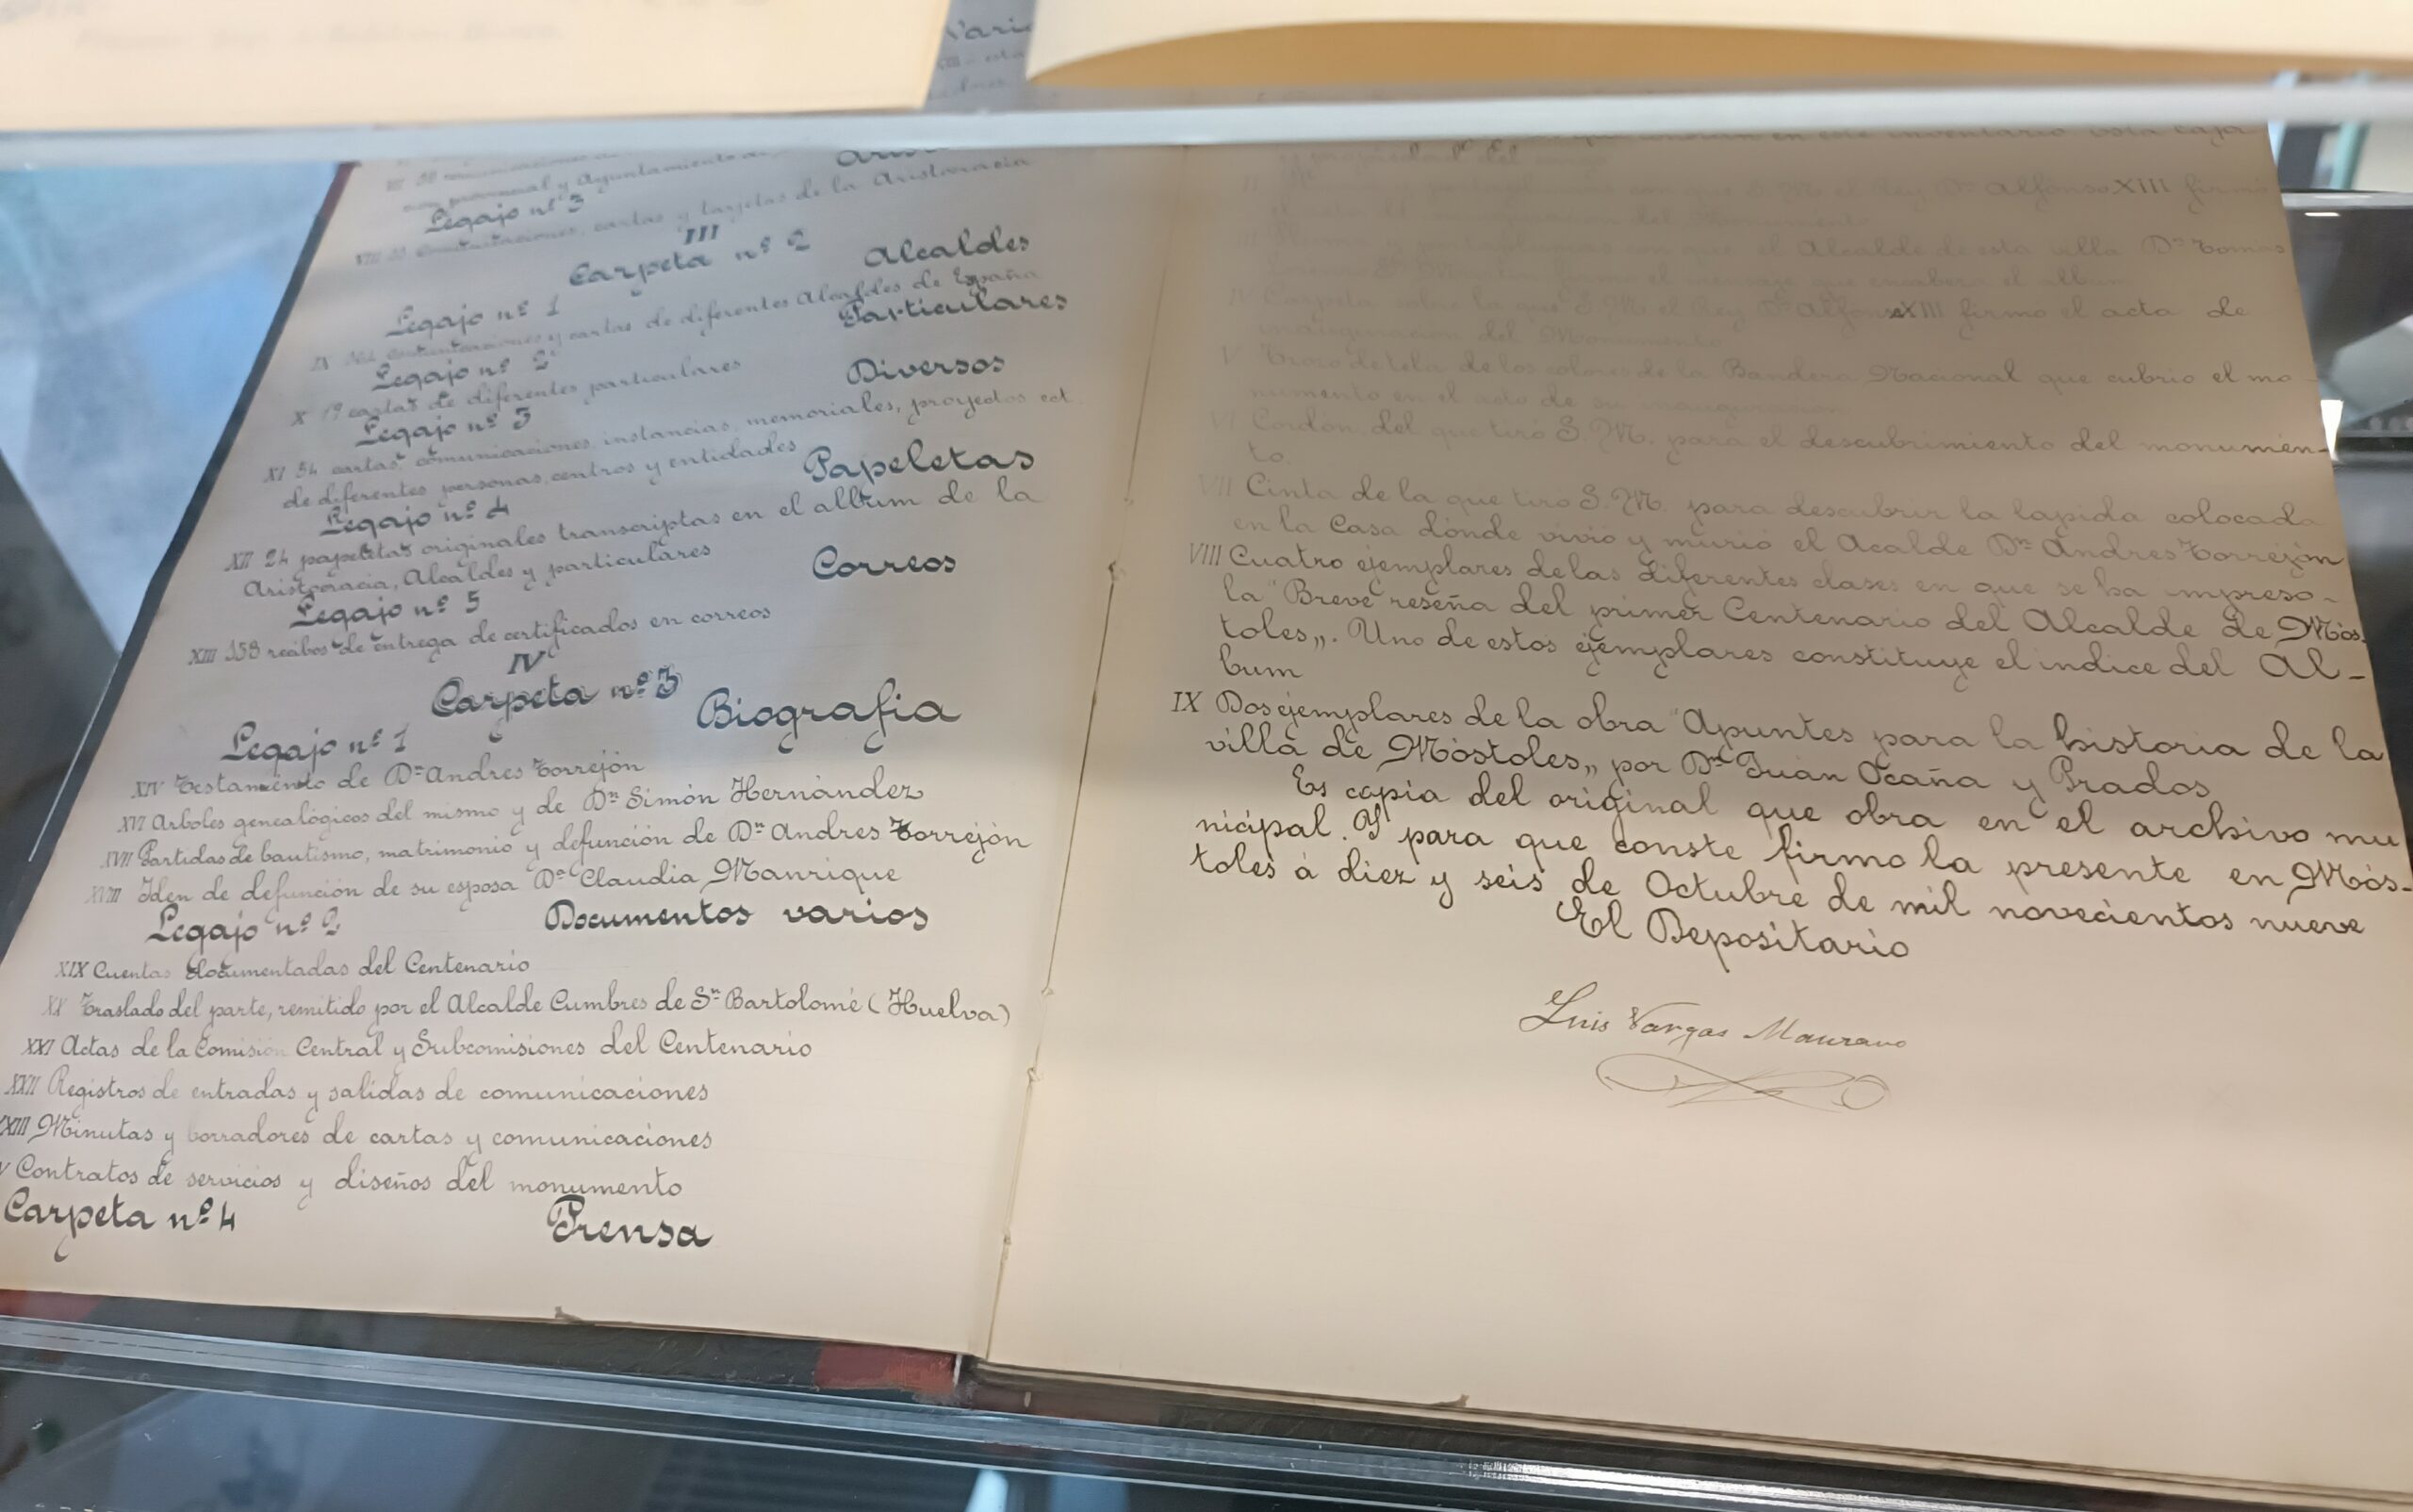 Legajo nº 3
cartas y tarjetas de la Aristocracia
III
Carpeta nº 2
Legajo nº 1 Alcaldes
IX comunicaciones y cartas de diferentes Alcaldes de España
Legajo nº 2 Particulares
X 19 cartas de diferentes particulares
Legajo nº 3 Diversos
XI 54 cartas, comunicaciones, instancias, memoriales, proyectos ect.
de diferentes personas, centros y entidades
Legajo nº 4 Papeletas
XII 24 papeletas originales transcriptas en el album de la
Aristocracia, Alcaldes y particulares
Legajo nº 5 Correos
XIII 158 recibos de entrega de certificados en correos
IV
Carpeta nº 3
Legajo nº 1 Biografia
XIV Testamento de Dn Andres Torrejón
XVI Arboles genealógicos del mismo y de Dn Simón Hernández
XVII Partidas de bautismo, matrimonio y defunción de Dn Andres Torrejón
XVIII Iden de defunción de su esposa Dª Claudia Manrique
Legajo nº 2 Documentos varios
XIX Cuentas documentadas del Centenario
XX Traslado del parte, remitido por el Alcalde Cumbres de Sn Bartolomé (Huelva)
XXI Actas de la Comisión Central y Subcomisiones del Centenario
XXII Registros de entradas y salidas de comunicaciones
XXIII Minutas y borradores de cartas y comunicaciones
V Contratos de servicios y diseños del monumento
Carpeta nº 4 Prensa
en este inventario Esta caja
que S. M. el Rey Dn Alfonso XIII firmó
del Monumento
el Alcalde de esta villa Dn Tomas
el mensaje que encabeza el album
IV Carpeta sobre la que S. M. el Rey Dn Alfonso XIII firmo el acta de
inauguración del Monumento
V Trozo de tela de los colores de la Bandera Nacional que cubrio el mo-
numento en el acto de su inauguracion
VI Cordón del que tiró S. M. para el descubrimiento del monumen-
to.
VII Cinta de la que tiro S. M. para descubrir la lapida colocada
en la Casa dónde vivió y murió el Acalde Dn Andres Torrejón
VIII Cuatro ejemplares de las diferentes clases en que se ha impreso-
la "Breve reseña del primer Centenario del Alcalde de Mós-
toles„. Uno de estos ejemplares constituye el indice del Al-
bum
IX Dos ejemplares de la obra "Apuntes para la historia de la
villa de Móstoles„ por Dn Juan Ocaña y Prados
Es copia del original que obra en el archivo mu
nicipal. Y para que conste firmo la presente en Mós-
toles á diez y seis de Octubre de mil novecientos nueve
El Depositario
Luis Vargas